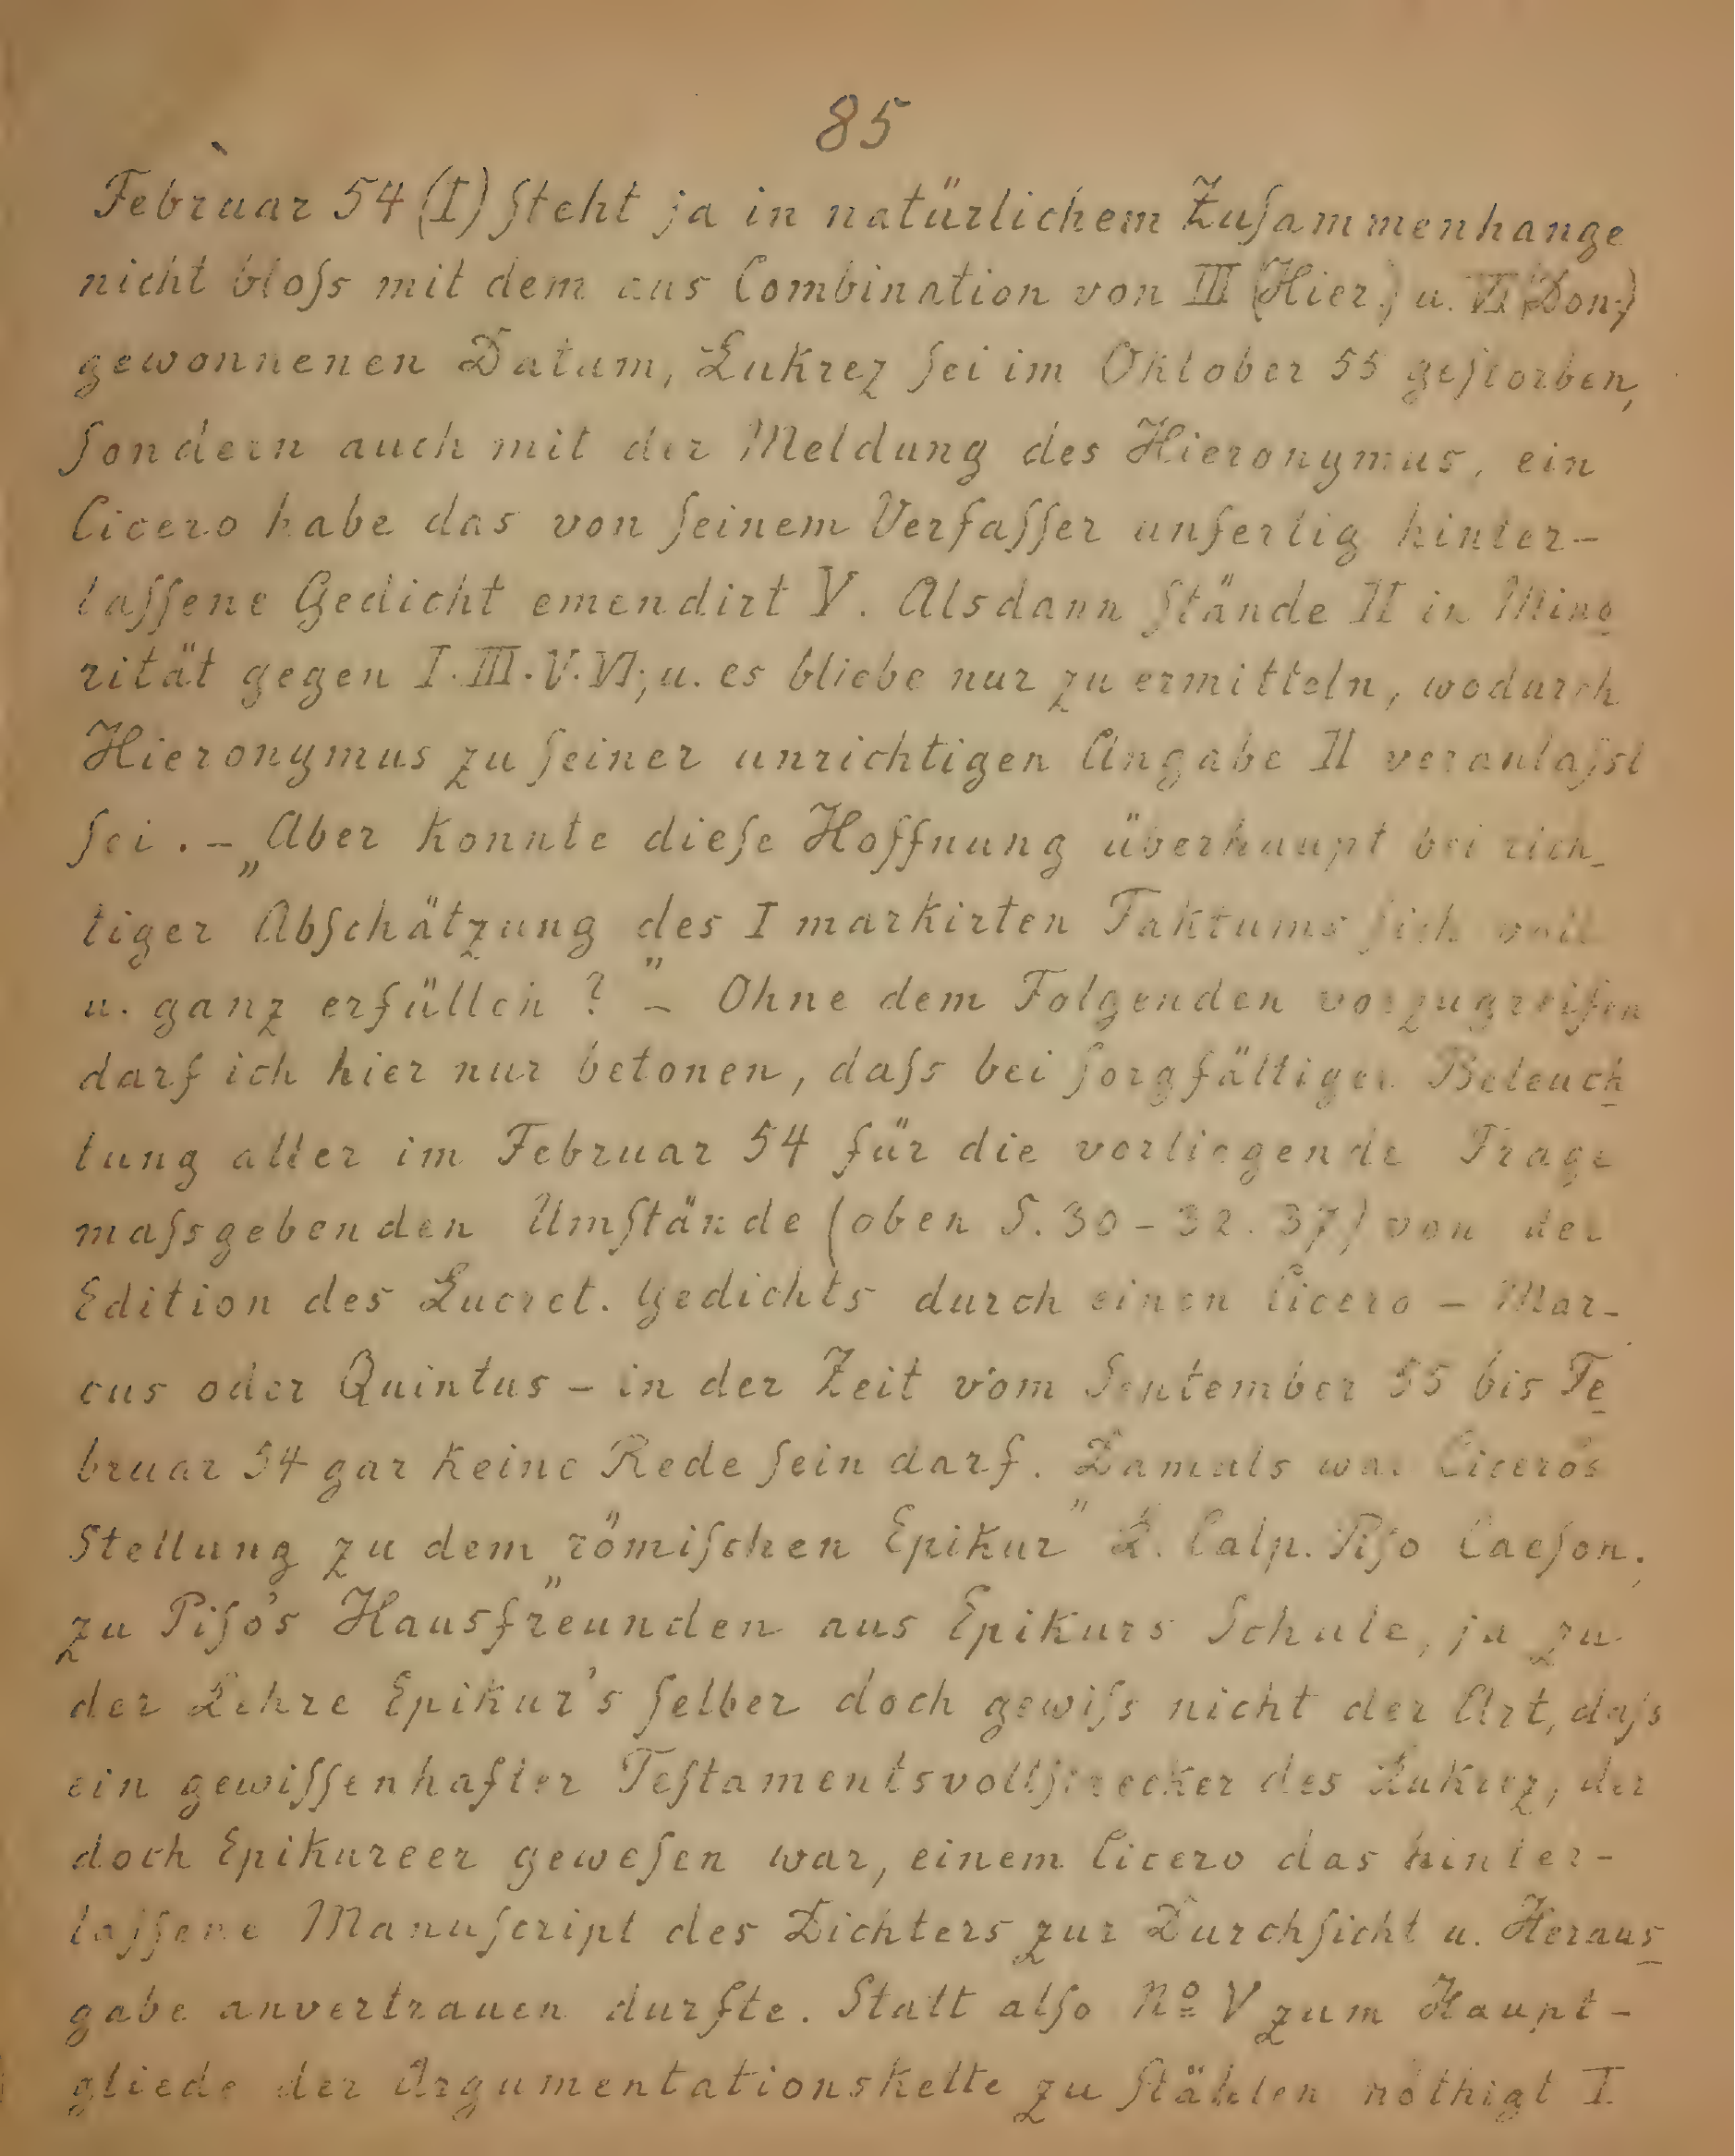 85
Februar 54 (I) ſteht ja in natürlichem Zuſammenhange
nicht bloſs mit dem aus Combination von III (Hier.) u. VI (Don.)
gewonnenen Datum, Lukrez ſei im Oktober 55 geſtorben,
ſondern auch mit der Meldung des Hieronymus, ein
Cicero habe das von ſeinem Verfaſſer unfertig hinter-
laſſene Gedicht emendirt V. Alsdann ſtände II in Mino
rität gegen I.III.V.VI; u. es bliebe nur zu ermitteln, wodurch
Hieronymus zu ſeiner unrichtigen Angabe II veranlaſst
ſei. – „Aber konnte dieſe Hoffnung überhaupt bei rich-
tiger Abſchätzung des I markirten Faktums ſich voll
u. ganz erfüllen?" – Ohne dem Folgenden vorzugreifen
darf ich hier nur betonen, daſs bei ſorgfältiger Beleuch
tung aller im Februar 54 für die vorliegende Frage
maſsgebenden Umſtände (oben S. 30-32. 37) von der
Edition des Lucret. Gedichts durch einen Cicero – Mar-
cus oder Quintus – in der Zeit vom September 55 bis Fe
bruar 54 gar keine Rede ſein darf. Damals war Cicero's
Stellung zu dem „römiſchen Epikur" L. Calp. Piſo Caeſon.,
zu Piſo's Hausfreunden aus Epikurs Schule, ja zu
der Lehre Epikur's ſelber doch gewiſs nicht der Art, daſs
ein gewiſſenhafter Teſtamentsvollſtrecker des Lukrez, der
doch Epikureer geweſen war, einem Cicero das hinter-
laſſene Manuſcript des Dichters zur Durchſicht u. Heraus
gabe anvertrauen durfte. Statt alſo Nº V zum Haupt-
gliede der Argumentationskette zu ſtählen nöthigt I